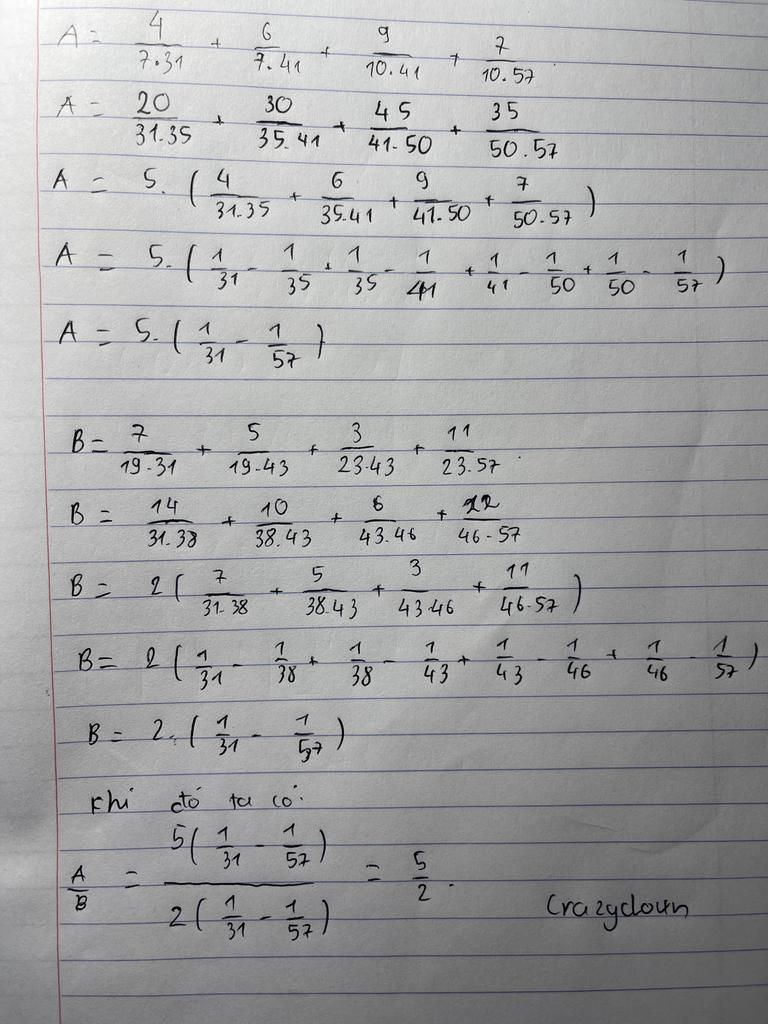 A = 4/7.31 + 6/7.41 + 9/10.41 + 7/10.57
A = 20/31.35 + 30/35.41 + 45/41.50 + 35/50.57
A = 5. ( 4/31.35 + 6/35.41 + 9/41.50 + 7/50.57 )
A = 5. ( 1/31 - 1/35 + 1/35 - 1/41 + 1/41 - 1/50 + 1/50 - 1/57 )
A = 5. ( 1/31 - 1/57 )
B = 7/19.31 + 5/19.43 + 3/23.43 + 11/23.57
B = 14/31.38 + 10/38.43 + 6/43.46 + 22/46.57
B = 2 ( 7/31.38 + 5/38.43 + 3/43.46 + 11/46.57 )
B = 2 ( 1/31 - 1/38 + 1/38 - 1/43 + 1/43 - 1/46 + 1/46 - 1/57 )
B = 2. ( 1/31 - 1/57 )
Khi đó ta có:
A/B = 5( 1/31 - 1/57 ) / 2( 1/31 - 1/57 ) = 5/2.
Crazyclown